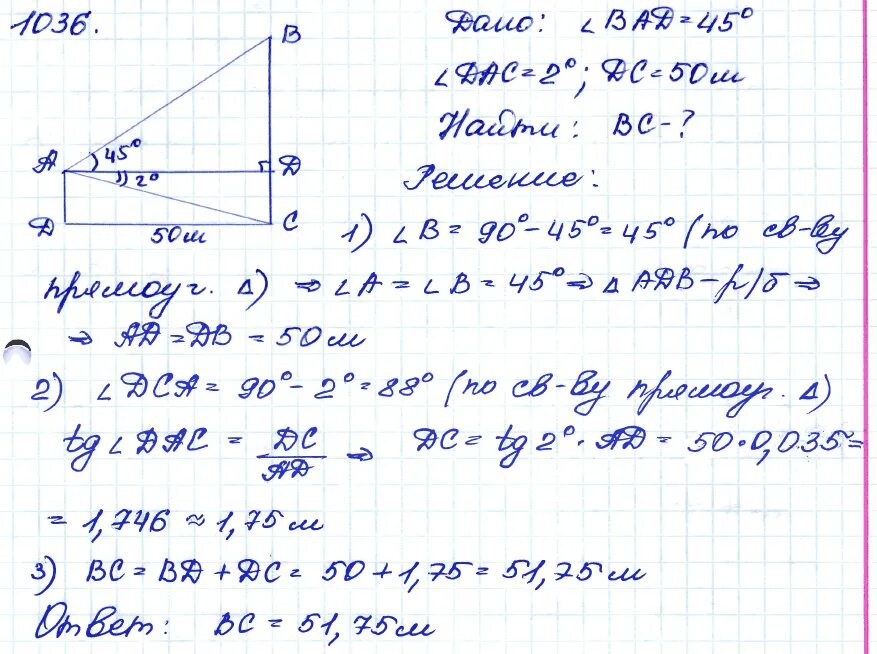 1036.
B
A
45°
2°
D
D
C
50м
Дано: ∠BAD=45°
∠DAC=2°; DC=50м
Найти: BC-?
Решение:
1) ∠B = 90°-45°=45° (по св-ву
прямоуг. Δ) ⇒ ∠A = ∠B = 45° ⇒ Δ ADB-р/б ⇒
⇒ AD=DB = 50м
2) ∠DCA= 90°-2°=88° (по св-ву прямоуг. Δ)
tg∠DAC = DC/AD ⇒ DC= tg2°·AD= 50·0,035≈=
= 1,746 ≈ 1,75м
3) BC=BD+DC= 50+1,75=51,75м
Ответ: BC=51,75м